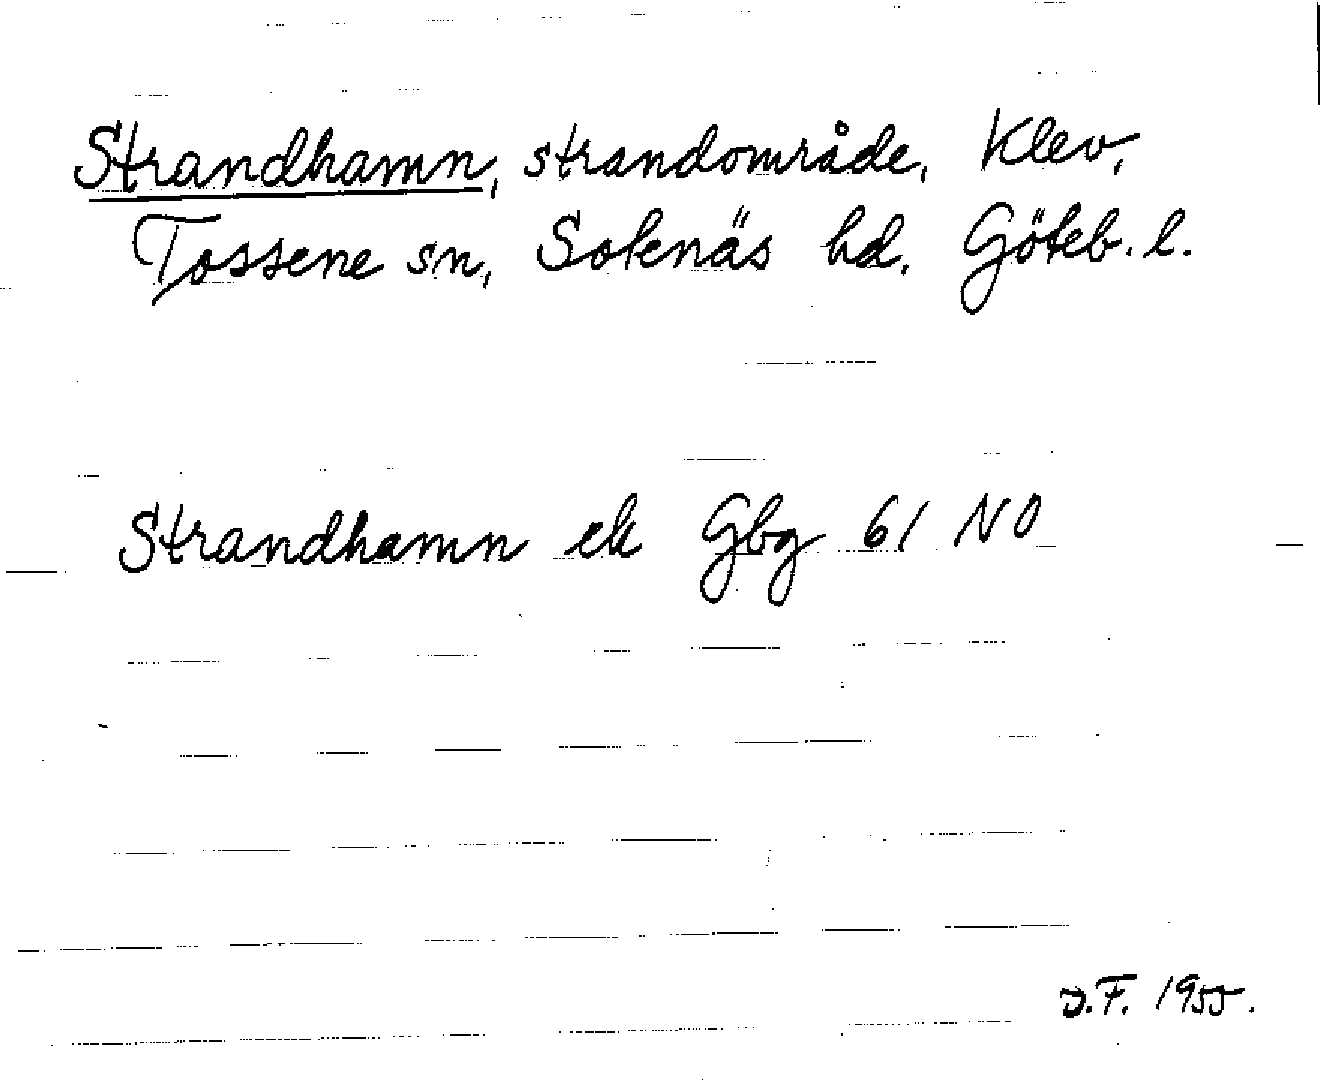 Strandhamn, strandområde, Klev,
Tossene sn, Sotenäs hd. Göteb. l.
Strandhamn ek Gbg 61 NO
D.F. 1955.